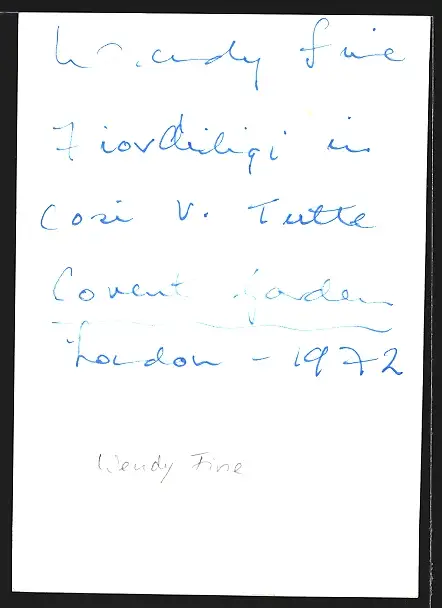 Wendy Fine
Fiordiligi in
Cosi V. Tutte
Covent Garden
London - 1972
Wendy Fine